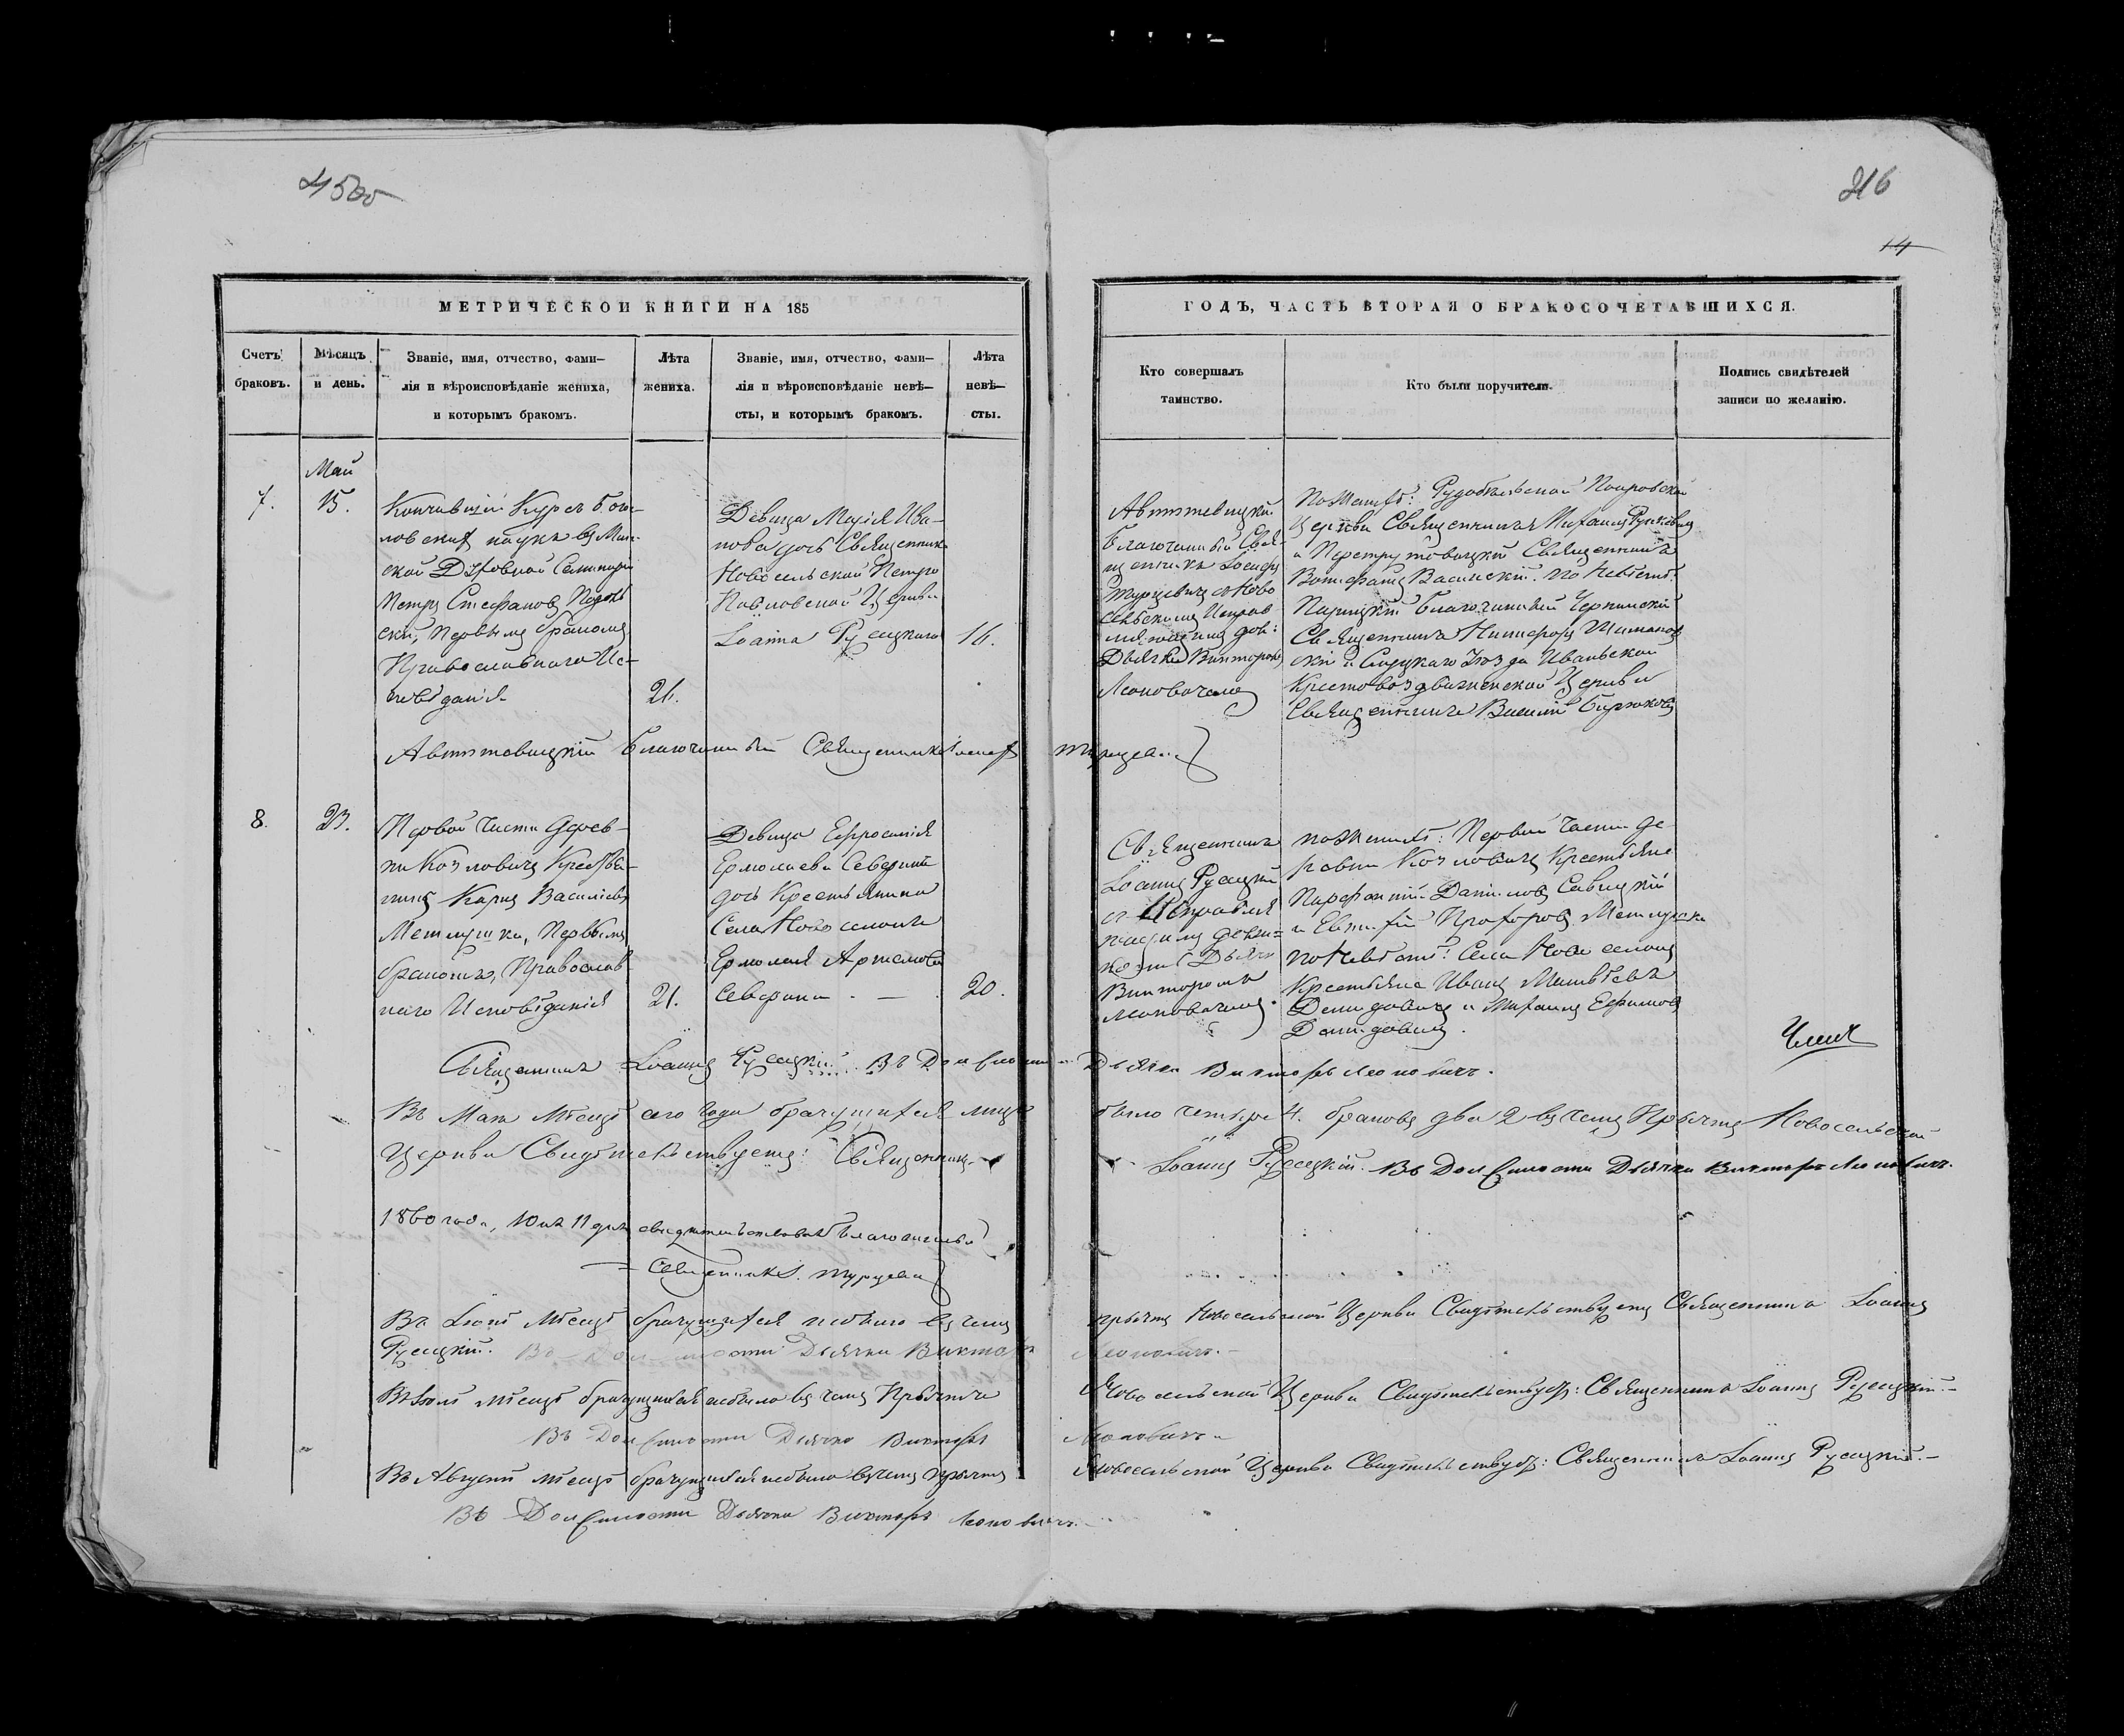 4500
216
14
МЕТРИЧЕСКОЙ КНИГИ НА 185
ГОДЪ, ЧАСТЬ ВТОРАЯ О БРАКОСОЧЕТАВШИХСЯ.
Счетъ браковъ.
Мѣсяцъ и день.
Званіе, имя, отчество, фами-
лія и вѣроисповѣданіе жениха,
и которымъ бракомъ.
Лѣта
жениха.
Званіе, имя, отчество, фами-
лія и вѣроисповѣданіе невѣ-
сты, и которымъ бракомъ.
Лѣта
невѣ-
сты.
Кто совершалъ
таинство.
Кто были поручители.
Подпись свидѣтелей
записи по желанію.
Май
7.
15.
Кончившій Курсъ бого-
ловскихъ наукъ въ Мин-
ской Духовной Семинаріи
Петръ Стефановъ
скій, Первымъ бракомъ
Православнаго Ис-
повѣданія
21.
Дѣвица Марія Ива-
нова дочь Священника
Новосельской Петро
Павловской Церкви
Іоанна Русецкаго
16.
Благочинный Свя-
щенникъ Іосифъ
Турцевичъ съ Ново
сельскимъ Исправ
ляющимъ дол:
Дьячка Викторомъ
Леоновичемъ
По Женихѣ: Рудобѣльской Покровской
Церкви Священникъ Михаилъ
и Священникъ
по Невѣстѣ:
Паричскій Благочинный Чернинскій
Священникъ Никифоръ Шиманов
скій и Слуцкаго Уѣзда Иваньской
Крестовоздвиженской Церкви
Священникъ Василій Бирюковъ
Благочинный Священникъ Іосифъ Турцевичъ
8.
23.
Первой Части дерев-
ни Козловичъ Крестья-
нинъ Карпъ Васильевъ
Метлушко, Первымъ
бракомъ, Православ
наго Исповѣданія
21.
Дѣвица Ефросинія
Ермолаева Северинъ
дочь Крестьянина
Села Новоселокъ
Ермолая Артемова
Северина. —
20.
Священникъ
Іоаннъ Русецкій
съ Исправля
ющимъ долж=
ность Дьячка
Викторомъ
Леоновичемъ.
по Женихѣ: Первой Части де
ревни Козловичъ Крестьяне
Парфентій Даниловъ Савицкій
и Евтифій Прохоровъ Метлушко
по Невѣстѣ: Села Новоселокъ
Крестьяне Иванъ Матвѣевъ
Демидовичъ и Михаилъ Ефимовъ
Демидовичъ.
Священникъ Іоаннъ Русецкій. Въ Должности Дьячка Викторъ Леоновичъ.
Въ Маѣ Мѣсяцѣ сего года брачущихся лицъ было четыре 4. браковъ два 2 въ чемъ Причтъ Новосельской
Церкви Свидѣтельствуетъ: Священникъ Іоаннъ Русецкій. Въ Должности Дьячка Викторъ Леоновичъ.
1860 года, 10 11 дня свидѣтельствовалъ Благочинный
Священникъ І. Турцевичъ
Въ Іюнѣ Мѣсяцѣ брачущихся небыло въ чемъ причтъ Новосельской Церкви Свидѣтельствуетъ Священникъ Іоаннъ
Русецкій. Въ Должности Дьячка Викторъ Леоновичъ.—
Въ Іюлѣ мѣсяцѣ брачущихся небыло въ чемъ Причтъ Новосельской Церкви Свидѣтельствуетъ: Священникъ Іоаннъ Русецкій.—
Въ Должности Дьячка Викторъ Леоновичъ
Въ Августѣ мѣсяцѣ брачущихся небыло въ чемъ причтъ Новосельской Церкви Свидѣтельствуетъ: Священникъ Іоаннъ Русецкій.—
Въ Должности Дьячка Викторъ Леоновичъ.